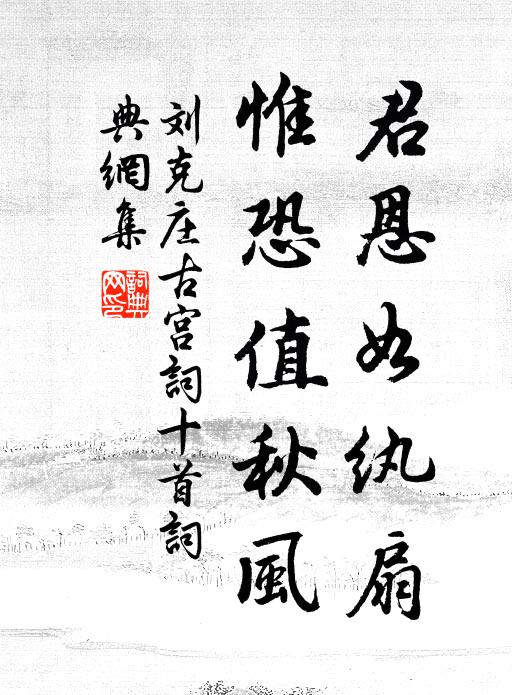 君恩如纨扇
惟恐值秋風
刘克庄古宫詞十首詞
典網集
詞典网印